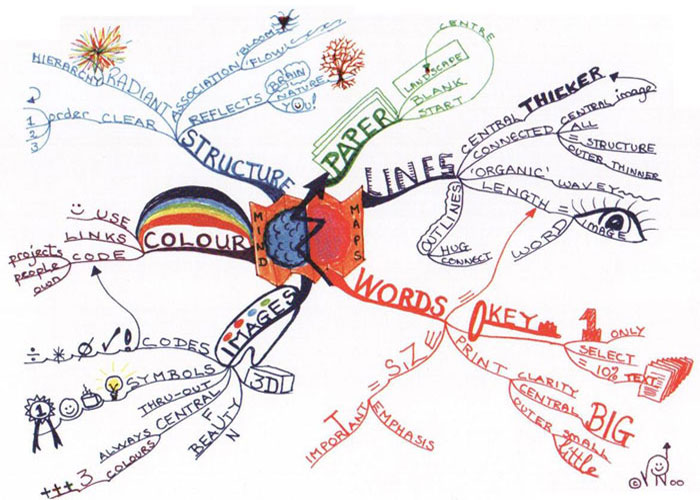 MIND
MAPS
PAPER
CENTRE
LANDSCAPE
BLANK
START
LINES
CENTRAL THICKER
CONNECTED
CENTRAL image
ALL
= STRUCTURE
OUTER THINNER
'ORGANIC' WAVEY
LENGTH =
IMAGE
WORD
OUTLINES
HUG
CONNECT
WORDS
KEY
1 ONLY
SELECT
= 10% TEXT
PRINT
CLARITY
CENTRAL BIG
OUTER small
little
= SIZE
= IMPORTANT
EMPHASIS
IMAGES
3D
BEAUTY
FUN
THRU-OUT
CENTRAL
ALWAYS
+++ 3 COLOURS
SYMBOLS
1
CODES
÷ * Ø √ !
COLOUR
USE
LINKS
CODE
projects
people
own
STRUCTURE
HIERARCHY
RADIANT
order CLEAR
1
2
3
ASSOCIATION
'BLOOM'
'FLOW'
REFLECTS
BRAIN
NATURE
YOU!
©